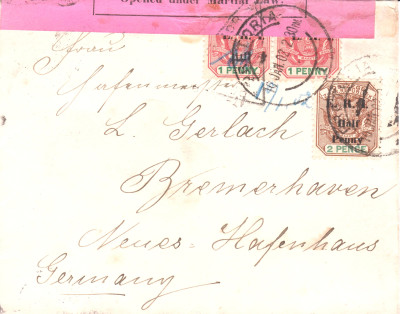 Opened under Martial Law.
PRETORIA
16 JAN 02
1 PENNY
1 PENNY
E. R. I.
Half
Penny
2 PENCE
Frau
Hafenmeister
L. Gerlach
Bremerhaven
Neues Hafenhaus
Germany